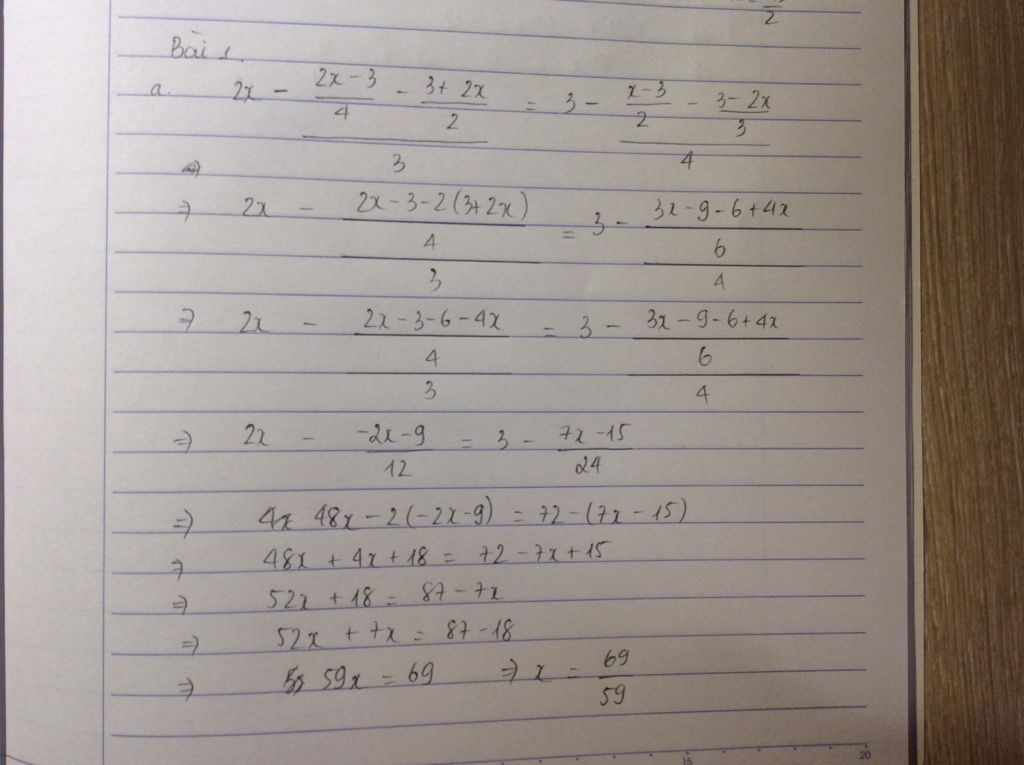 2
Bài 1.
a. 2x - ((2x-3)/4 - (3+2x)/2)/3 = 3 - ((x-3)/2 - (3-2x)/3)/4
⇒ 2x - ((2x-3-2(3+2x))/4)/3 = 3 - ((3x-9-6+4x)/6)/4
⇒ 2x - ((2x-3-6-4x)/4)/3 = 3 - ((3x-9-6+4x)/6)/4
⇒ 2x - (-2x-9)/12 = 3 - (7x-15)/24
⇒ 48x - 2(-2x-9) = 72 - (7x-15)
⇒ 48x + 4x + 18 = 72 - 7x + 15
⇒ 52x + 18 = 87 - 7x
⇒ 52x + 7x = 87 - 18
⇒ 59x = 69 ⇒ x = 69/59
15 20